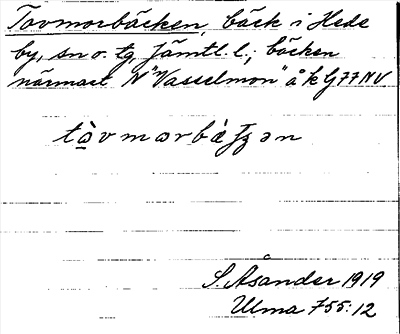 Tovmorbäcken, bäck i Hede
by, sn o. tg, Jämtl. l.; bäcken
närmast N "Vasselmon" å k G77NV
S. Åsander 1919
Ulma 755:12